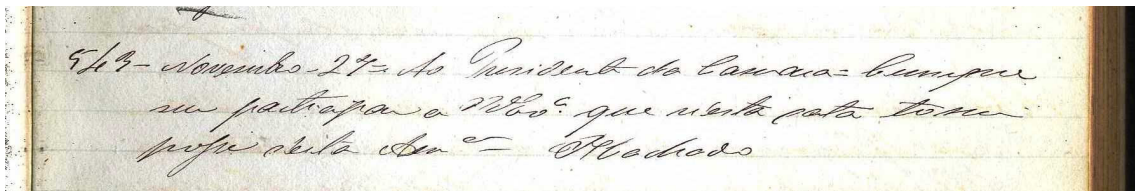 543 - Novembro - 27 = Ao Presidente da Camara = Cumpre
me participar a V Exª que n'esta data tomei
posse d'esta Admª = Machado